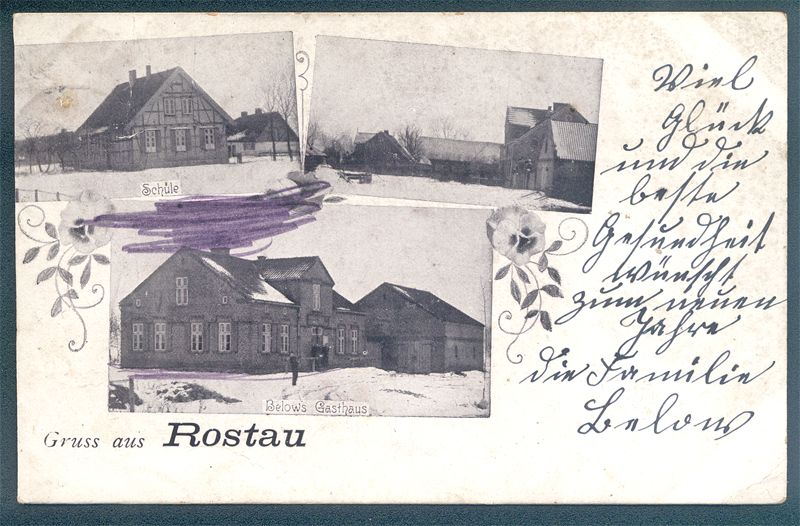 Schule
Below's Gasthaus
Gruss aus Rostau
Viel
Glück
und die
beste
Gesundheit
wünscht
zum neuen
Jahre
die Familie
Below